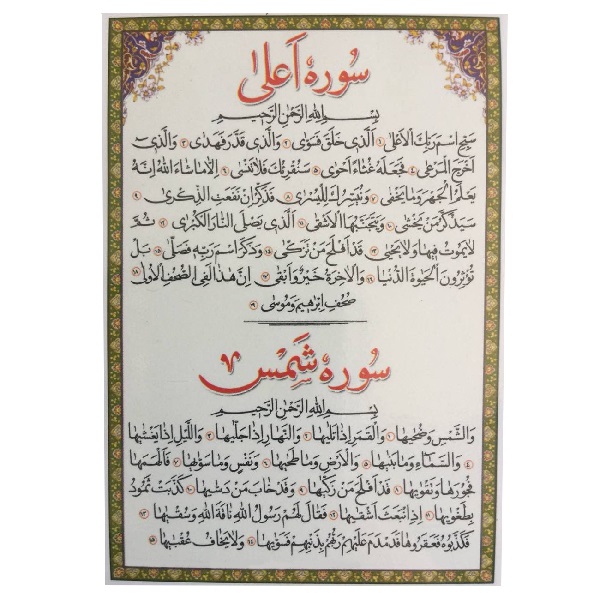 سوره اَعلیٰ
بِسْمِ اللهِ الرَّحْمٰنِ الرَّحیمِ
سَبِّحِ اسْمَ رَبِّكَ الْاَعْلَى ۱ اَلَّذى خَلَقَ فَسَوّٰى ۲ وَالَّذى قَدَّرَ فَهَدٰى ۳ وَالَّذى
اَخْرَجَ الْمَرْعٰى ۴ فَجَعَلَهُ غُثٰٓاءً اَحْوٰى ۵ سَنُقْرِئُكَ فَلا تَنْسٰى ۶ اِلّا ماشٰاءَ اللهُ اِنَّهُ
يَعْلَمُ الْجَهْرَ وَما يَخْفٰى ۷ وَنُيَسِّرُكَ لِلْيُسْرٰى ۸ فَذَكِّرْ اِنْ نَفَعَتِ الذِّكْرٰى ۹
سَيَذَّكَّرُ مَنْ يَخْشٰى ۱۰ وَيَتَجَنَّبُهَا الْاَشْقٰى ۱۱ اَلَّذى يَصْلَى النّارَ الْكُبْرٰى ۱۲ ثُمَّ
لا يَمُوتُ فيها وَلا يَحْيٰى ۱۳ قَدْ اَفْلَحَ مَنْ تَزَكّٰى ۱۴ وَذَكَرَ اسْمَ رَبِّهِ فَصَلّٰى ۱۵ بَلْ
تُؤْثِرُونَ الْحَيٰوةَ الدُّنْيا ۱۶ وَالْاٰخِرَةُ خَيْرٌ وَاَبْقٰى ۱۷ اِنَّ هٰذا لَفِى الصُّحُفِ الْاُولٰى ۱۸
صُحُفِ اِبْرٰهيمَ وَمُوسٰى ۱۹
سوره شَمس
بِسْمِ اللهِ الرَّحْمٰنِ الرَّحیمِ
وَالشَّمْسِ وَضُحٰيها ۱ وَالْقَمَرِ اِذا تَلٰيها ۲ وَالنَّهارِ اِذا جَلّٰيها ۳ وَالَّيْلِ اِذا يَغْشٰيها
۴ وَالسَّمٰٓاءِ وَما بَنٰيها ۵ وَالْاَرْضِ وَما طَحٰيها ۶ وَنَفْسٍ وَما سَوّٰيها ۷ فَاَلْهَمَها
فُجُورَها وَتَقْوٰيها ۸ قَدْ اَفْلَحَ مَنْ زَكّٰيها ۹ وَقَدْ خابَ مَنْ دَسّٰيها ۱۰ كَذَّبَتْ ثَمُودُ
بِطَغْوٰيها ۱۱ اِذِ انْبَعَثَ اَشْقٰيها ۱۲ فَقالَ لَهُمْ رَسُولُ اللهِ ناقَةَ اللهِ وَسُقْيٰها ۱۳
فَكَذَّبُوهُ فَعَقَرُوها فَدَمْدَمَ عَلَيْهِمْ رَبُّهُمْ بِذَنْبِهِمْ فَسَوّٰيها ۱۴ وَلا يَخافُ عُقْبٰيها ۱۵